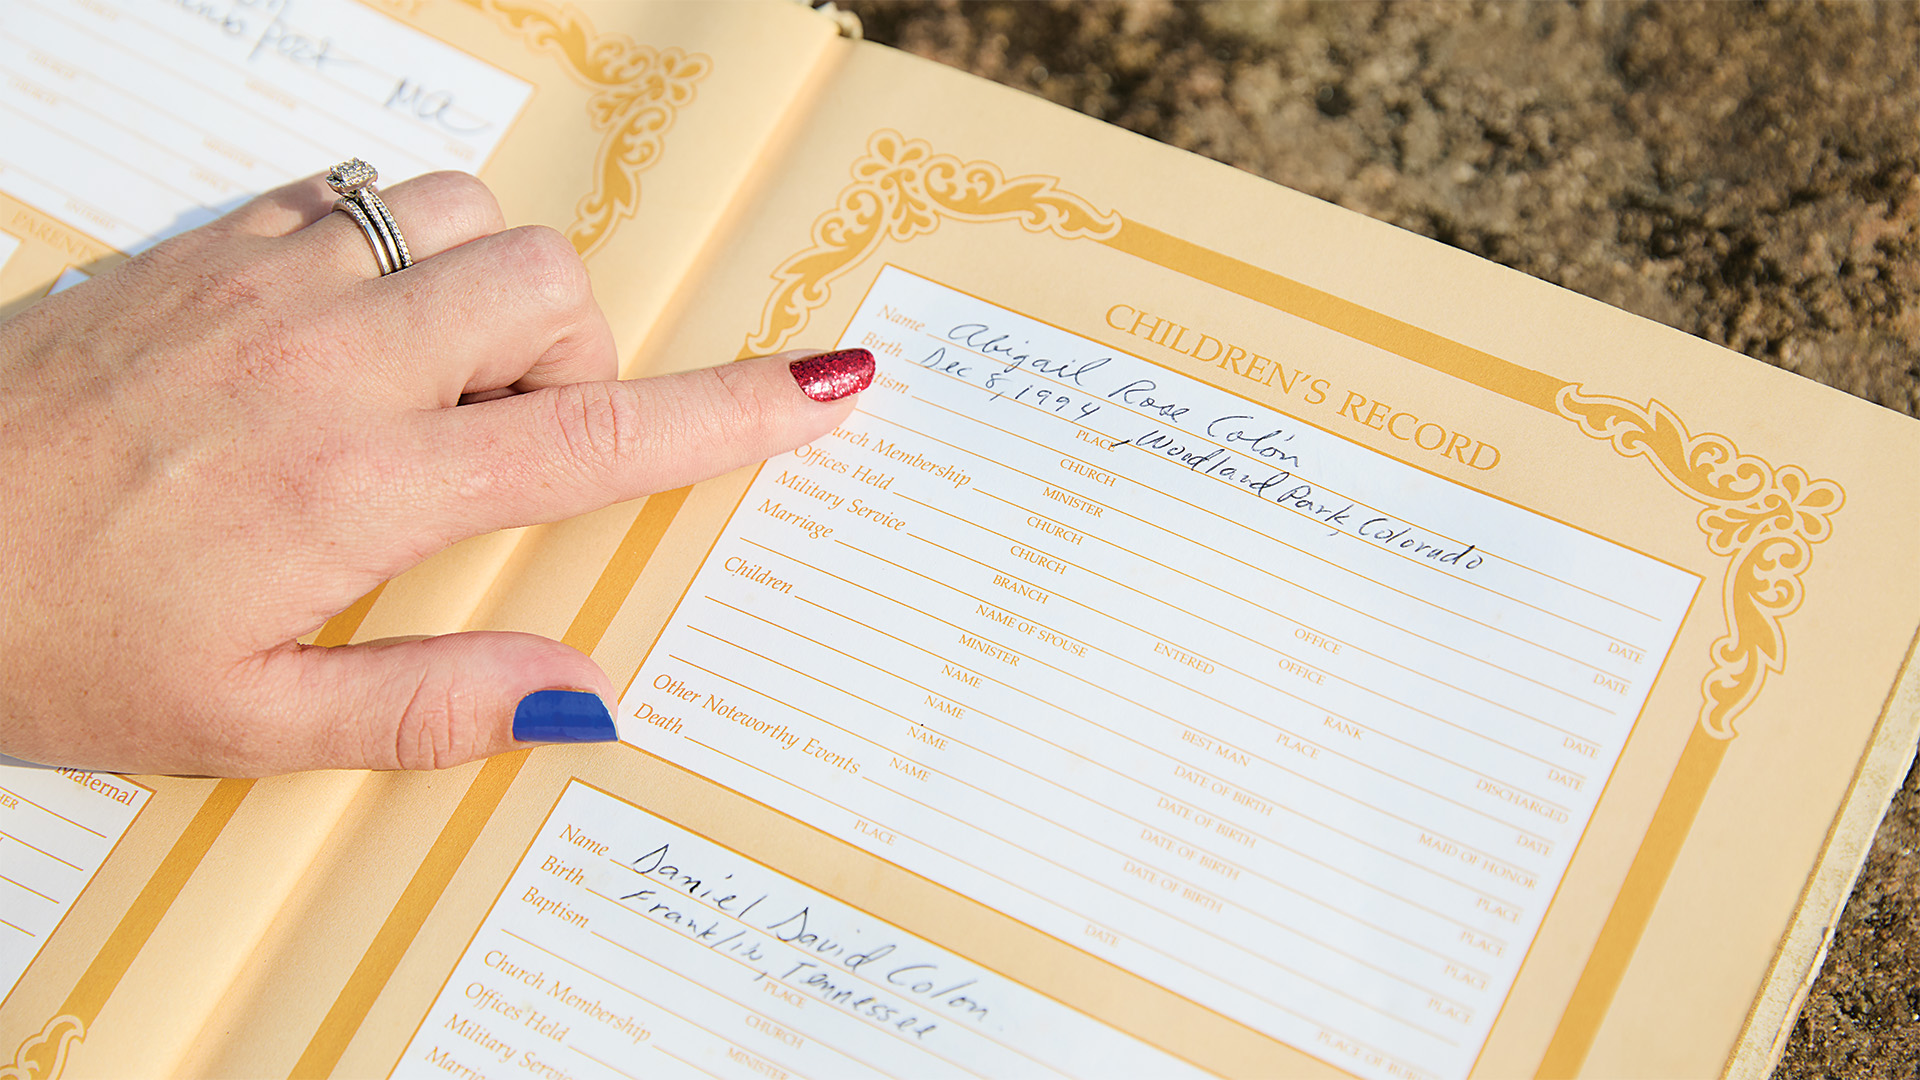 post MA
PARENTS
Maternal
CHILDREN'S RECORD
Name Abigail Rose Colón
Birth Dec 8, 1994, Woodland Park, Colorado
tism PLACE
CHURCH
MINISTER OFFICE DATE
urch Membership CHURCH OFFICE DATE
Offices Held CHURCH RANK DATE
Military Service BRANCH ENTERED PLACE DATE
Marriage NAME OF SPOUSE DISCHARGED
MINISTER BEST MAN DATE
Children NAME DATE OF BIRTH MAID OF HONOR
NAME DATE OF BIRTH PLACE
NAME DATE OF BIRTH PLACE
NAME DATE OF BIRTH PLACE
Other Noteworthy Events PLACE
Death
PLACE DATE PLACE OF BURI
Name Daniel David Colon
Birth Franklin, Tennessee
Baptism PLACE
CHURCH
Church Membership MINISTER
Offices Held
Military Service
Marria